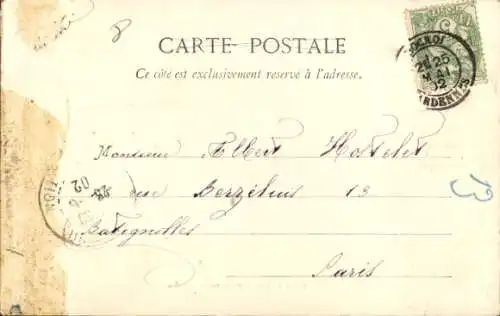 8
CARTE POSTALE
Ce côté est exclusivement reservé à l'adresse.
25
MAI
02
ARDENNES
Monsieur Albert Hostelet
rue Berzélius 13
Batignolles
Paris
02